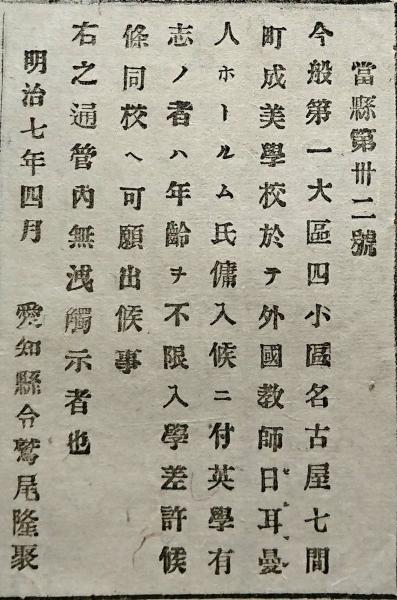 當縣第卅二號
今般第一大區四小區名古屋七間
町成美學校於テ外國教師日耳曼
人ホールム氏傭入候ニ付英學有
志ノ者ハ年齡ヲ不限入學差許候
條同校ヘ可願出候事
右之通管內無洩觸示者也
明治七年四月 愛知縣令鷲尾隆聚